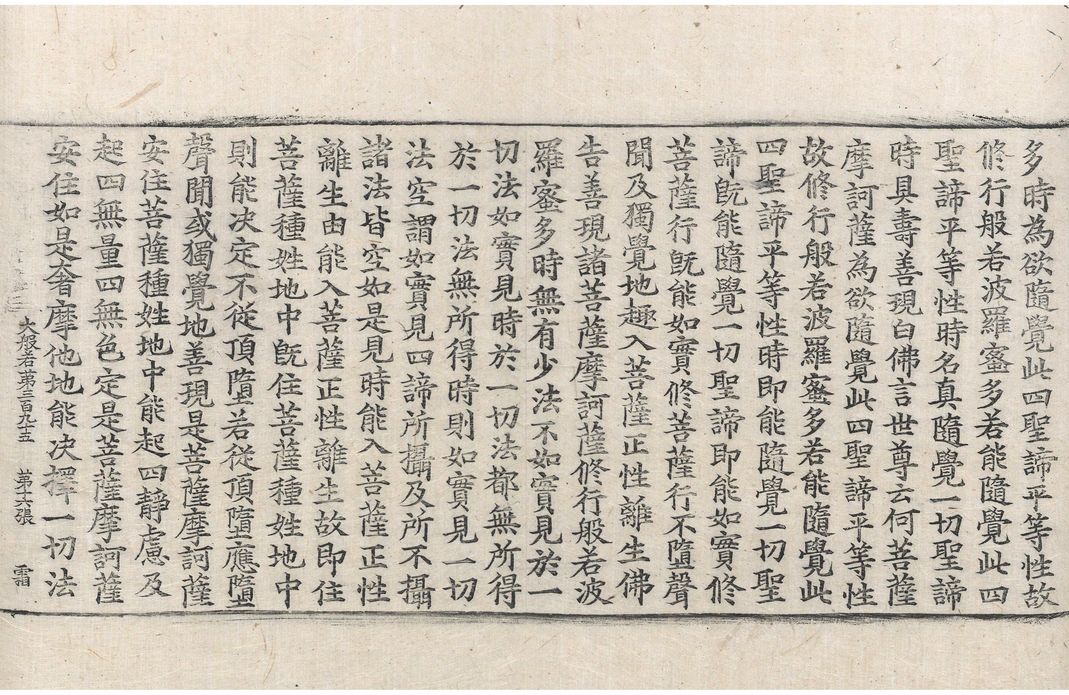 多時為欲隨覺此四聖諦平等性故
修行般若波羅蜜多若能隨覺此四
聖諦平等性時名真隨覺一切聖諦
時具壽善現白佛言世尊云何菩薩
摩訶薩為欲隨覺此四聖諦平等性
故修行般若波羅蜜多若能隨覺此
四聖諦平等性時即能隨覺一切聖
諦旣能隨覺一切聖諦即能如實修
菩薩行旣能如實修菩薩行不墮聲
聞及獨覺地趣入菩薩正性離生佛
告善現諸菩薩摩訶薩修行般若波
羅蜜多時無有少法不如實見於一
切法如實見時於一切法都無所得
於一切法無所得時則如實見一切
法空謂如實見四諦所攝及所不攝
諸法皆空如是見時能入菩薩正性
離生由能入菩薩正性離生故即住
菩薩種姓地中旣住菩薩種姓地中
則能决定不從頂墮若從頂墮應墮
聲聞或獨覺地善現是菩薩摩訶薩
安住菩薩種姓地中能起四靜慮及
起四無量四無色定是菩薩摩訶薩
安住如是奢摩他地能决擇一切法
大般若第三百九十五 第張 霜